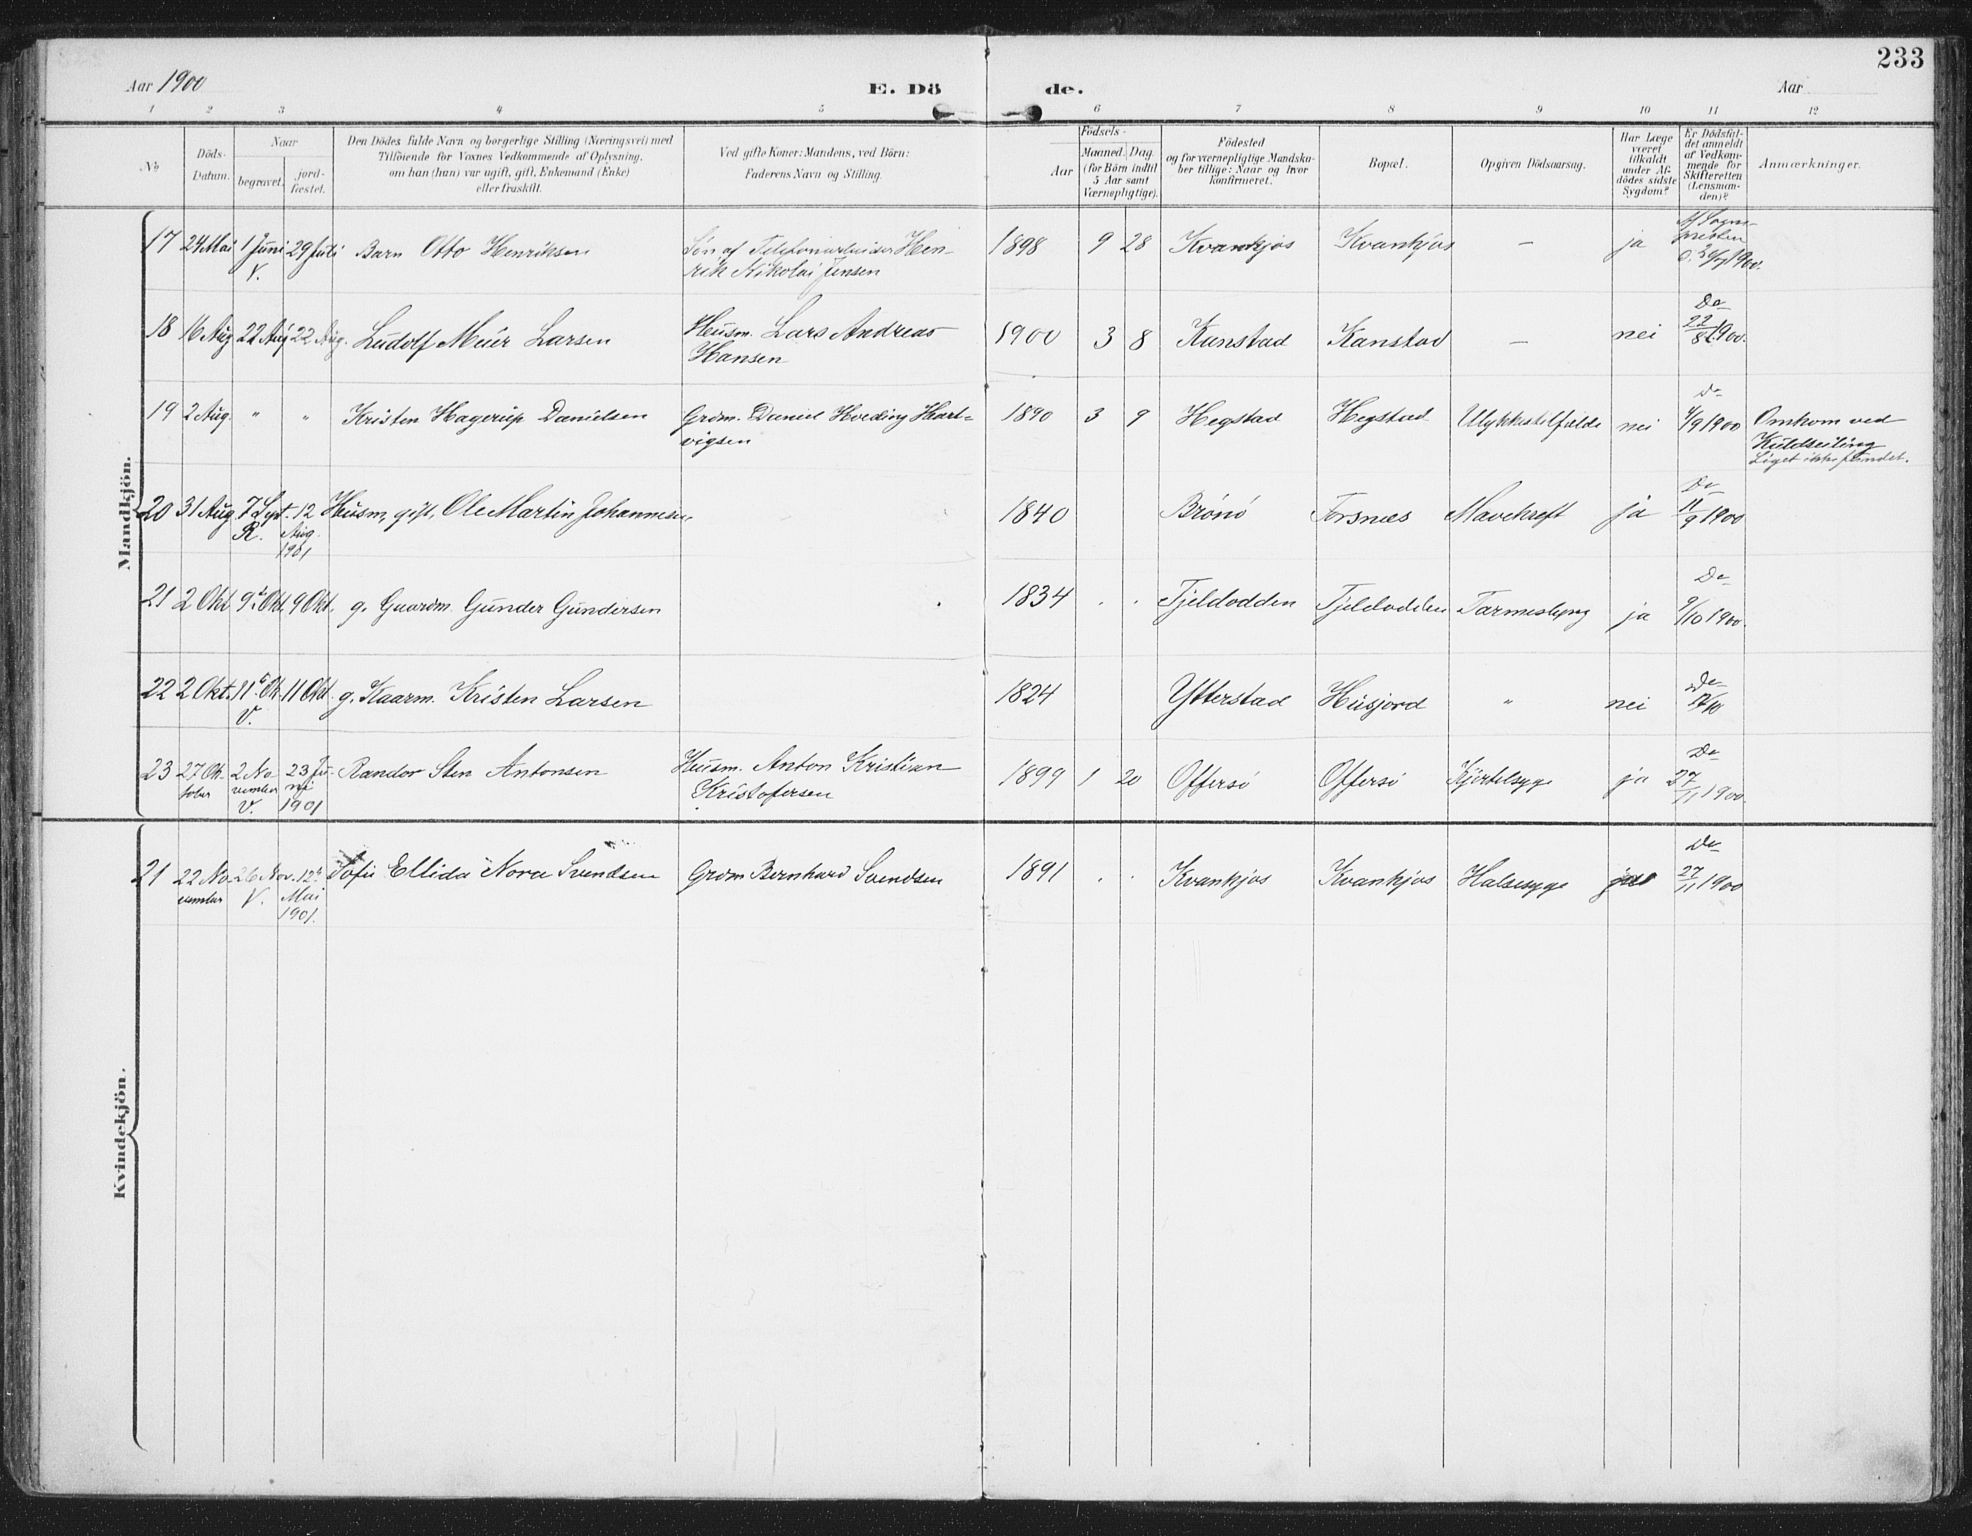 233
Aar 1900 E. Dö de. Aar
1 2 3 4 5 6 7 8 9 10 11 12
No
Döds-Datum.
Naar
begravet.
jord-fæstet.
Den Dödes fulde Navn og borgerlige Stilling (Næringsvei) med
Tilföiende for Voxnes Vedkommende af Oplysning,
om han (hun) var ugift, gift, Enkemand (Enke)
eller fraskilt.
Ved gifte Koner: Mandens, ved Börn:
Faderens Navn og Stilling.
Födsels-
Aar
Maaned. Dag.
(for Börn indtil
5 Aar samt
Værnepligtige).
Födested
og for værnepligtige Mandska-
ber tillige: Naar og hvor
konfirmeret.
Bopæl.
Opgiven Dödsaarsag.
Har Læge
været
tilkaldt
under Af-
dödes sidste
Sygdom?
Er Dödsfal-
det anmeldt
af Vedkom-
mende for
Skifteretten
(Lensman-
den)?
Anmærkninger.
Mandkjön.
17 24 Mai 1 Juni 29 Juli Barn Otto Henriksen Søn af Telefonarbeider Hen- 1898 9 28 Kvankjos Kvankjos — ja
V. rik Nikolai Jensen 1900.
18 16 Aug 22 Aug 22 Aug. Ludolf Meier Larsen Husm. Lars Andreas 1900 3 8 Kanstad Kanstad — nei Do 22/8 1900.
Hansen
19 2 Aug. " " Kristen Hagerup Danielsen Grdm. Daniel Hveding Hart- 1890 3 9 Hegstad Hegstad Ulykkestilfælde nei Do 4/9 1900 Omkom ved
vigsen Kuldseiling
Liget ikke fundet.
20 31 Aug 7 Sept. 12 Husm, gift, Ole Martin Johannesen, 1840 Brønø Forsnæs Mavekreft ja Do 11/9 1900
R. Aug.
1901
21 2 Okt 9 Okt. 9 Okt. g. Gaardm. Gunder Gundersen 1834 . . Tjeldodden Tjeldodden Tarmeslyng ja Do 9/10 1900.
22 2 Okt. 11 Ok. 11 Okt. g. Kaarm. Kristen Larsen 1824 Ytterstad Husjord " nei Do
V.
23 27 Ok- 2 No- 23 Ju- Randor Sten Antonsen Husm. Anton Kristian 1899 1 20 Offersø Offersø Kjertelsyge ja Do 27/11 1900.
tober vember ni Kristofersen
V. 1901
Kvindekjön.
21 22 No- 26 Nov. 12te Sofie Ellida Nora Svendsen Grdm Bernhard Svendsen 1891 . . Kvankjos Kvankjos Halsesyge ja Do 27/11 1900
vember V. Mai
1901.